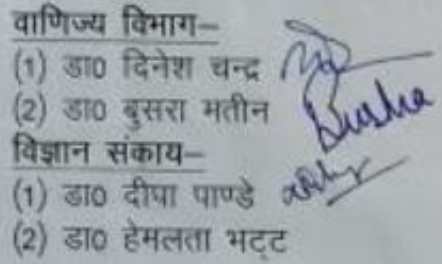 वाणिज्य विभाग–
(1) डा0 दिनेश चन्द्र
(2) डा0 बुसरा मतीन
विज्ञान संकाय–
(1) डा0 दीपा पाण्डे
(2) डा0 हेमलता भट्ट